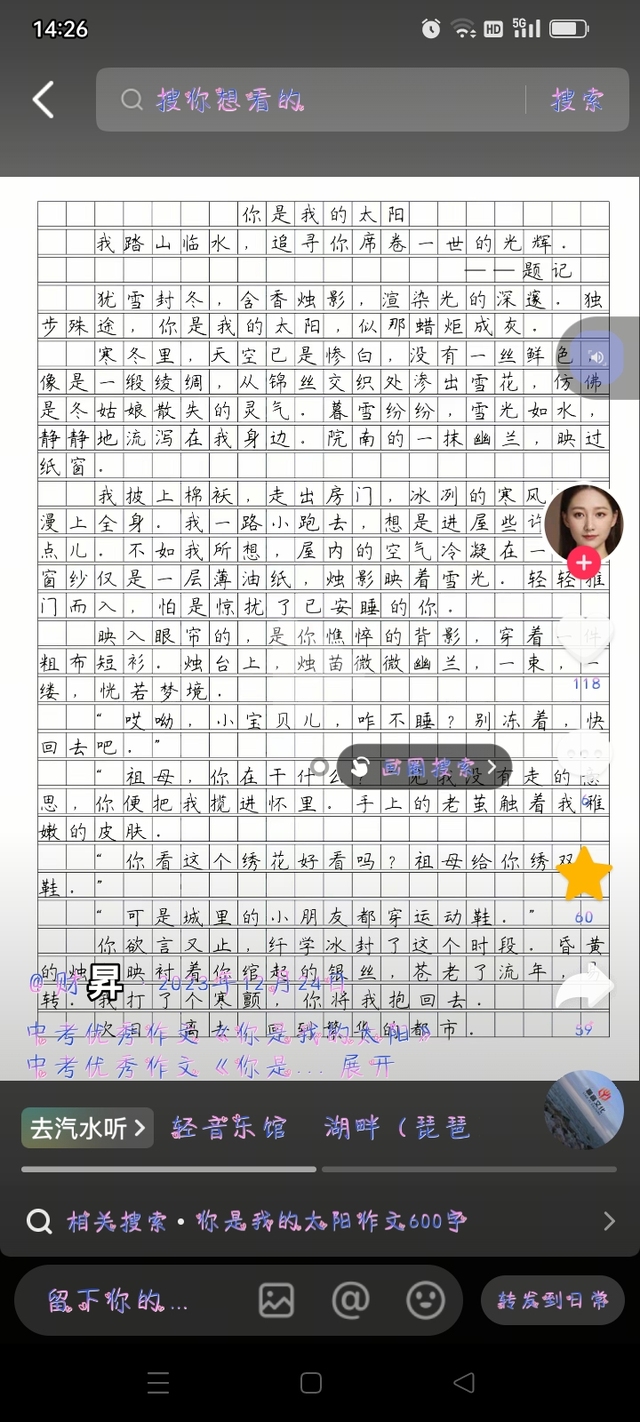 14:26
HD 5G
搜你想看的 搜索
你是我的太阳
我踏山临水，追寻你席卷一世的光辉.
——题记
犹雪封冬，含香烛影，渲染光的深邃.独
步殊途，你是我的太阳，似那蜡炬成灰.
寒冬里，天空已是惨白，没有一丝鲜色，
像是一缎绫绸，从锦丝交织处渗出雪花，仿佛
是冬姑娘散失的灵气.暮雪纷纷，雪光如水，
静静地流泻在我身边.院南的一抹幽兰，映过
纸窗.
我披上棉袄，走出房门，冰冽的寒风
漫上全身.我一路小跑去，想是进屋些许
点儿.不如我所想，屋内的空气冷凝在一
窗纱仅是一层薄油纸，烛影映着雪光.轻轻推
门而入，怕是惊扰了已安睡的你.
映入眼帘的，是你憔悴的背影，穿着一件
粗布短衫.烛台上，烛苗微微幽兰，一束，一
缕，恍若梦境.
118
“哎呦，小宝贝儿，咋不睡？别冻着，快
回去吧.”
“祖母，你在干什么？”见我没有走的意
画圈搜索
思，你便把我揽进怀里.手上的老茧触着我稚
嫩的皮肤.
“你看这个绣花好看吗？祖母给你绣双
鞋.”
“可是城里的小朋友都穿运动鞋.”
60
你欲言又止，纤学冰封了这个时段.昏黄
的烛 映衬着你绾起的银丝，苍老了流年，
@财昇 2023年12月24日
转.我打了个寒颤，你将我抱回去.
次日， 离老 回到繁华的都市.
59
中考优秀作文《你是我的太阳》
中考优秀作文《你是... 展开
去汽水听 轻音乐馆 湖畔（琵琶
相关搜索 • 你是我的太阳作文600字
留下你的... @ 转发到日常